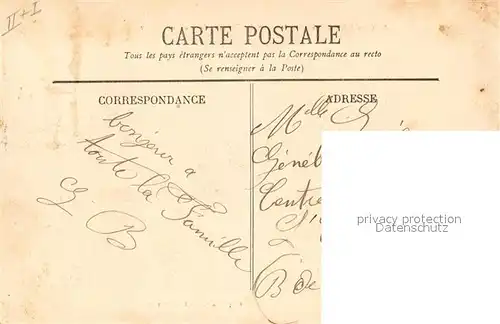 II + I
CARTE POSTALE
Tous les pays étrangers n'acceptent pas la Correspondance au recto
(Se renseigner à la Poste)
CORRESPONDANCE
ADRESSE
bonjour a
toute la famille
G B
Mlle
privacy protection
Datenschutz
B de